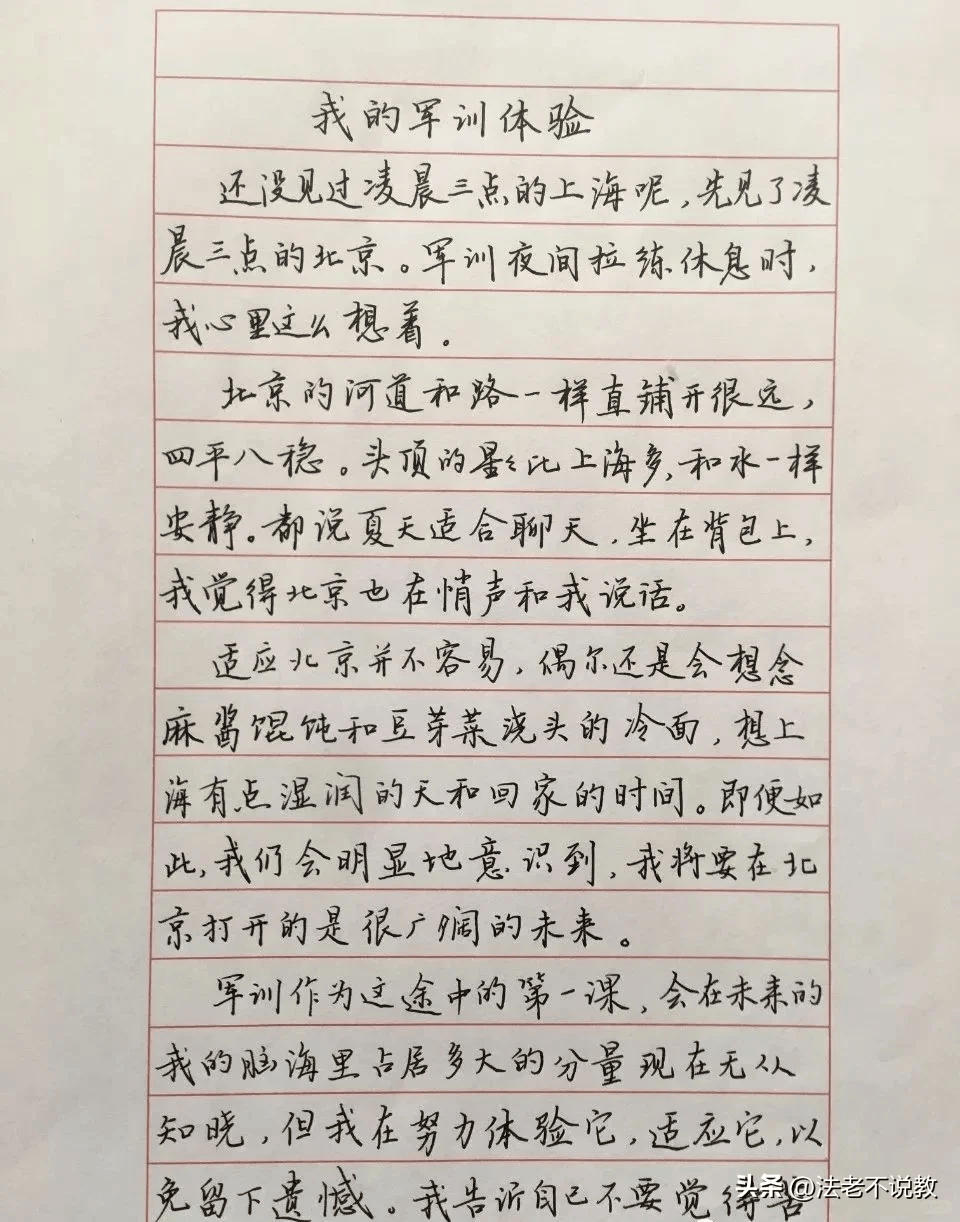 我的军训体验
还没见过凌晨三点的上海呢,先见了凌
晨三点的北京。军训夜间拉练休息时,
我心里这么想着。
北京的河道和路一样直铺开很远,
四平八稳。头顶的星星比上海多,和水一样
安静。都说夏天适合聊天,坐在背包上,
我觉得北京也在悄声和我说话。
适应北京并不容易,偶尔还是会想念
麻酱馄饨和豆芽菜浇头的冷面,想上
海有点湿润的天和回家的时间。即便如
此,我们会明显地意识到,我将要在北
京打开的是很广阔的未来。
军训作为这途中的第一课,会在未来的
我的脑海里占居多大的分量现在无从
知晓,但我在努力体验它,适应它,以
免留下遗憾。我告诉自己不要觉得苦
头条@法老不说教